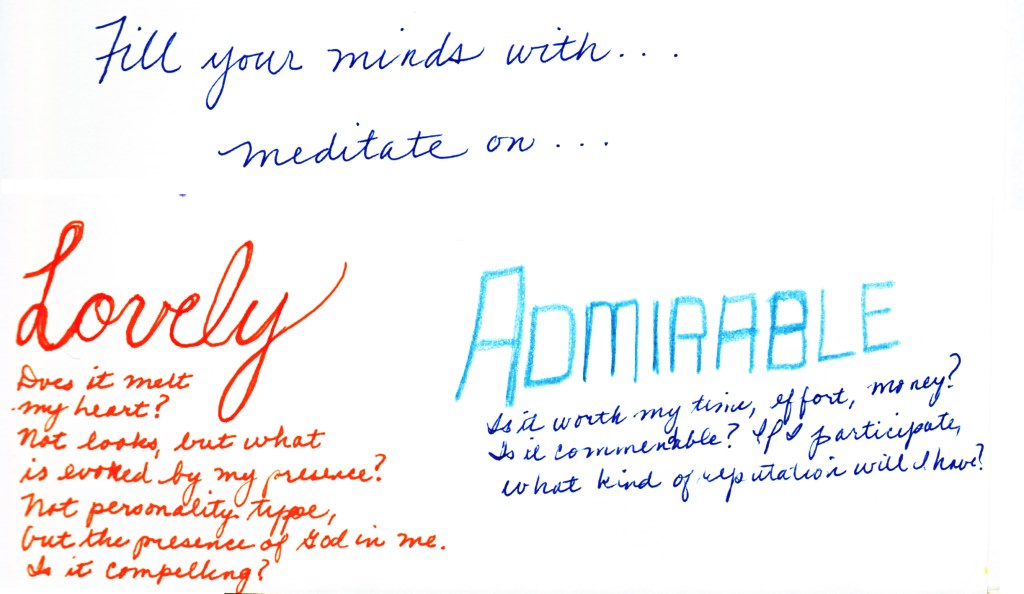 Fill your minds with...
meditate on...
Lovely
Does it melt
my heart?
Not looks, but what
is evoked by my presence?
Not personality type,
but the presence of God in me.
Is it compelling?
ADMIRABLE
Is it worth my time, effort, money?
Is it commendable? If I participate,
what kind of reputation will I have?